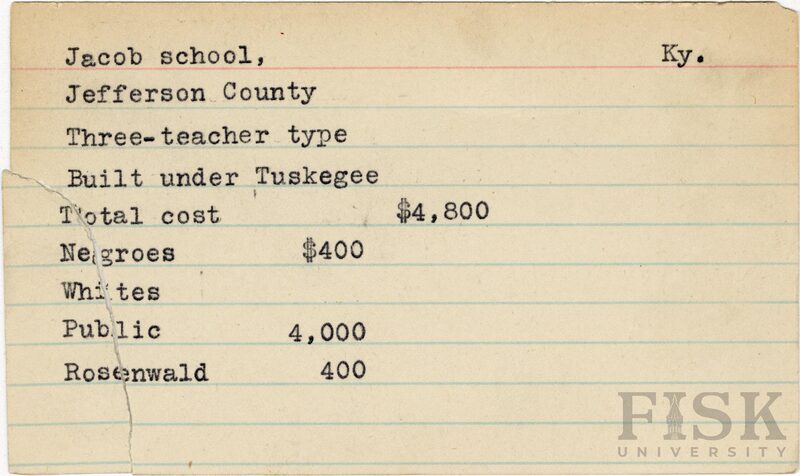 Jacob school, Ky.
Jefferson County
Three-teacher type
Built under Tuskegee
Total cost $4,800
Negroes $400
Whites
Public 4,000
Rosenwald 400
FISK
UNIVERSITY